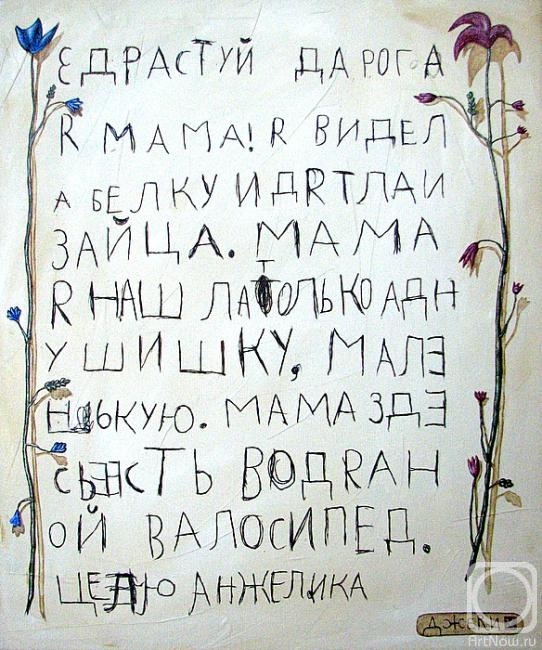 ЕДРАСТУЙ ДАРОГА
R МАМА! R ВИДЕЛ
А БЕЛКУ И ДRТЛА И
ЗАЙЦА. МАМА
R НАШ ЛА ТОЛЬКО АДН
У ШИШКУ, МАЛЕ
НЬКУЮ. МАМА ЗДЕ
СЬ ЕСТЬ ВОДRАН
ОЙ ВАЛОСИПЕД.
ЦЕЛУЮ АНЖЕЛИКА
ArtNow.ru